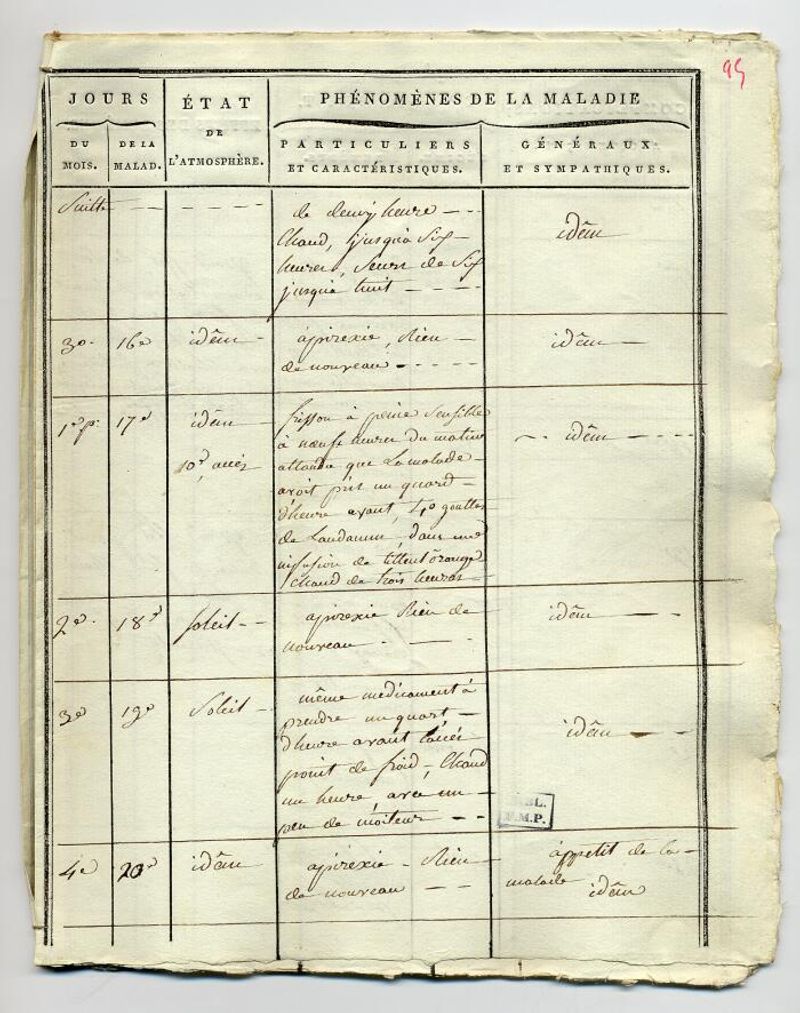 95
JOURS
ÉTAT
DE
L'ATMOSPHÈRE.
PHÉNOMÈNES DE LA MALADIE
DU
MOIS.
DE LA
MALAD.
PARTICULIERS
ET CARACTÉRISTIQUES.
GÉNÉRAUX
ET SYMPATHIQUES.
Suitte — — — — — —
de deux heure — —
Chaud, jusqu'à Six —
heures, Seurs de Six
jusqu'à huit — — — —
idêm
30. 16e idêm —
apirexie, Rien —
de nouveau — — — — —
idêm —
17e idêm —
10e accès
frisson à peine Sensible
à noeuf heures du matin
attandu que La malade —
avoit pris un quard —
d'heure avant, 40 gouttes
de Laudanum, dans une
infusion de
Chaud de trois heures —
— — idêm — — — —
2e. 18e Soleil — —
apirexie Rien de
nouveau — — —
idêm — — —
3e 19e Soleil —
même médicament à
prendre un quart —
d'heure avant
point de froid, Chaud
un heure, avec un —
peu de moiteur — —
idêm — —
4e 20e idêm
apirexie — Rien —
de nouveau — —
appetit de la —
malade idêm
BL.
M.P.